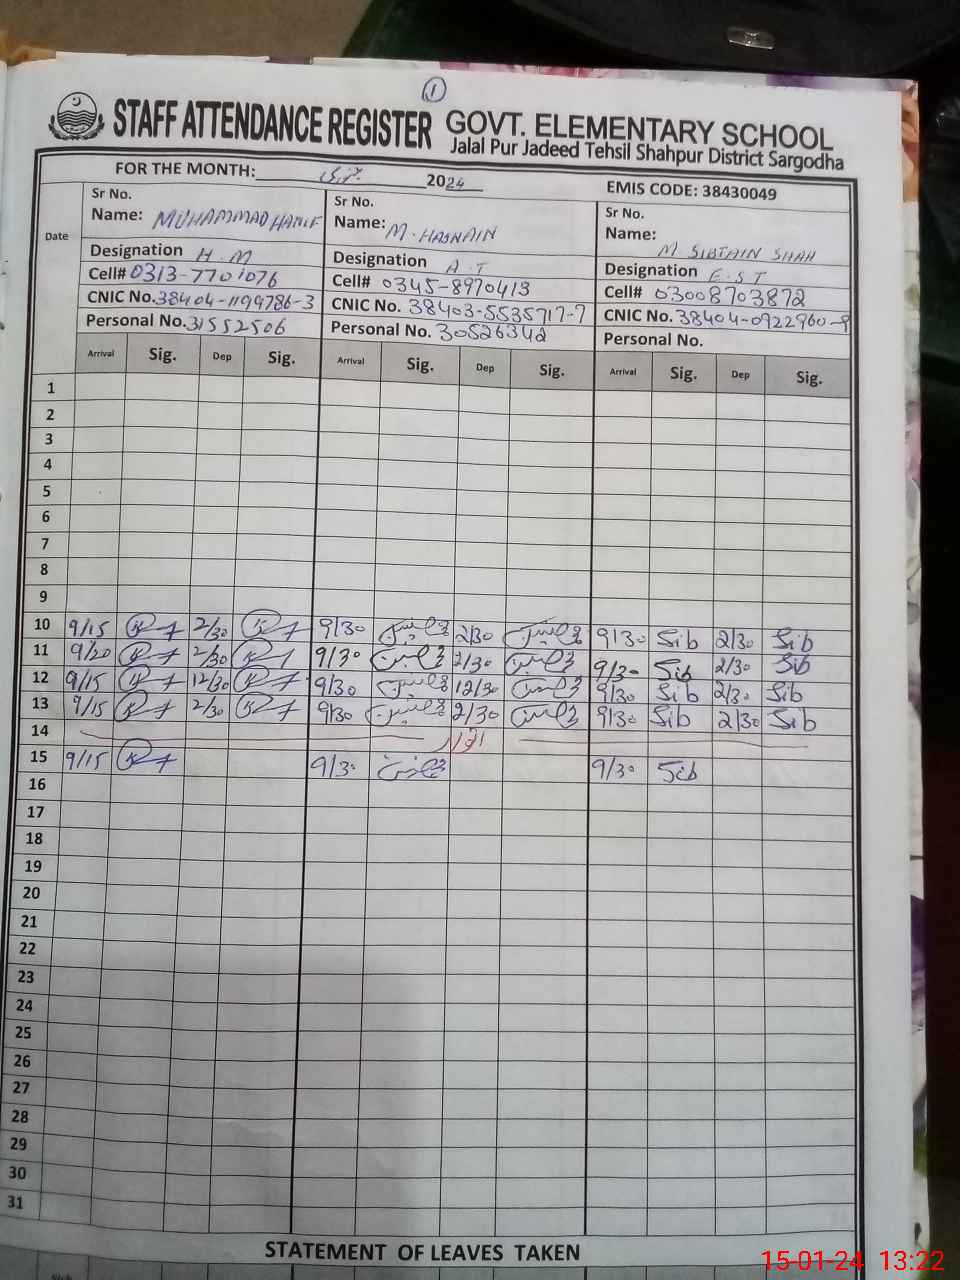 1
STAFF ATTENDANCE REGISTER GOVT. ELEMENTARY SCHOOL
Jalal Pur Jadeed Tehsil Shahpur District Sargodha
FOR THE MONTH: جنوری 2024 EMIS CODE: 38430049
Date
Sr No. Sr No. Sr No.
Name: MUHAMMAD HANIF Name: M. HASNAIN Name: M SIBTAIN SHAH
Designation H.M Designation A.T Designation E.S.T
Cell# 0313-7701076 Cell# 0345-8970413 Cell# 03008703872
CNIC No. 38404-1199786-3 CNIC No. 38403-5535717-7 CNIC No. 38404-0922960-9
Personal No. 31552506 Personal No. 30526342 Personal No.
Arrival Sig. Dep Sig. Arrival Sig. Dep Sig. Arrival Sig. Dep Sig.
1
2
3
4
5
6
7
8
9
10 9/15 2/30 9/30 2/30 9/30 Sib 2/30 Sib
11 9/20 2/30 9/30 2/30 9/30 Sib 2/30 Sib
12 9/15 12/30 9/30 12/30 9/30 Sib 2/30 Sib
13 9/15 2/30 9/30 2/30 9/30 Sib 2/30 Sib
14 اتوار
15 9/15 9/30 9/30 Sib
16
17
18
19
20
21
22
23
24
25
26
27
28
29
30
31
STATEMENT OF LEAVES TAKEN
15-01-24 13:22